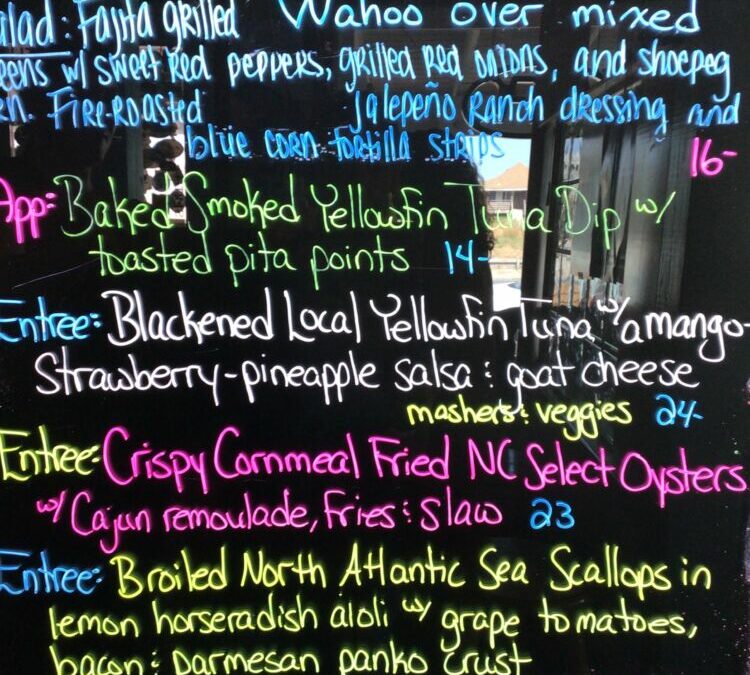 alad: Fajita grilled Wahoo over mixed
eens w/ sweet Red peppers, grilled Red onions, and shoepeg
rn. Fire-Roasted Jalepeño Ranch dressing and
blue corn tortilla strips
16-
App: Baked Smoked Yellowfin Tuna Dip w/
toasted pita points 14-
Entree: Blackened Local Yellowfin Tuna w/ a mango-
Strawberry-pineapple salsa & goat cheese
mashers & veggies 24-
Entree: Crispy Cornmeal Fried NC Select Oysters
w/ Cajun remoulade, Fries & slaw 23
Entree: Broiled North Atlantic Sea Scallops in
lemon horseradish aioli w/ grape tomatoes,
bacon & parmesan panko crust